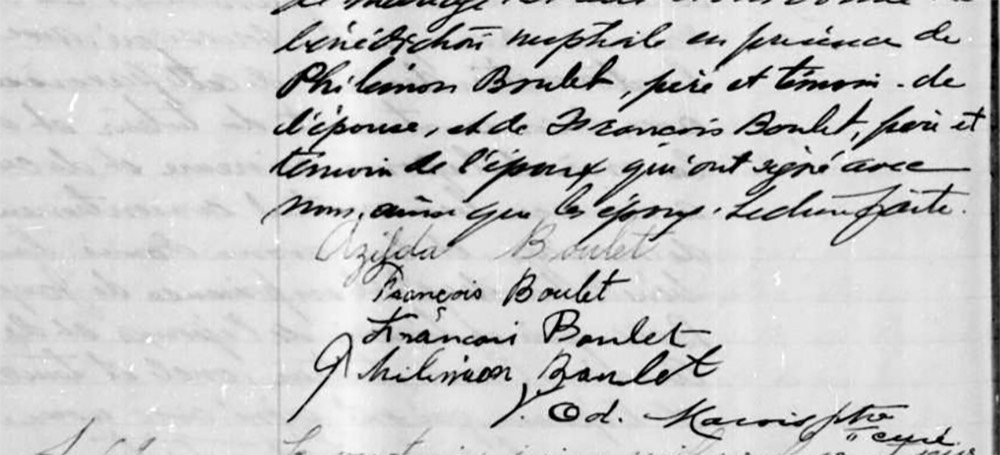 de mariage et
bénédiction nuptiale en présence de
Philémon Boulet, père et témoin de
l'épouse, et de François Boulet, père et
témoin de l'époux qui ont signé avec
nous, ainsi que les époux. Lecture faite.
Azilda Boulet
François Boulet
François Boulet
Philémon Boulet
J. Od. Marois ptre
curé